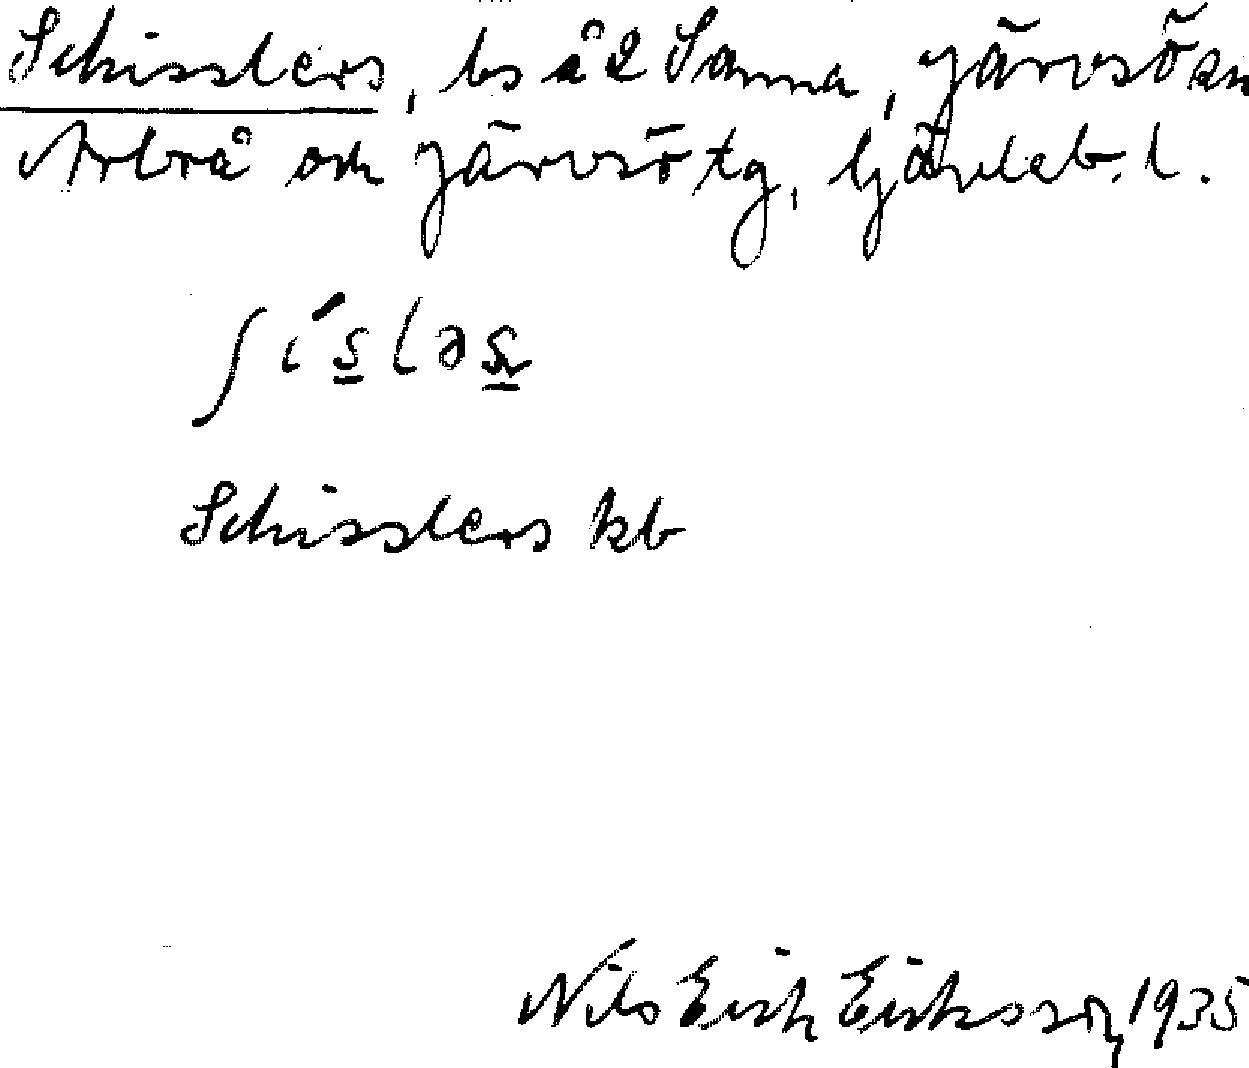 Schisslers, bs å 2 Sanna, Järvsö sn
Arbrå och Järvsö tg, Gävleb. l.
ʃísləs
Schisslers kb
Nils Erik Eriksson, 1935